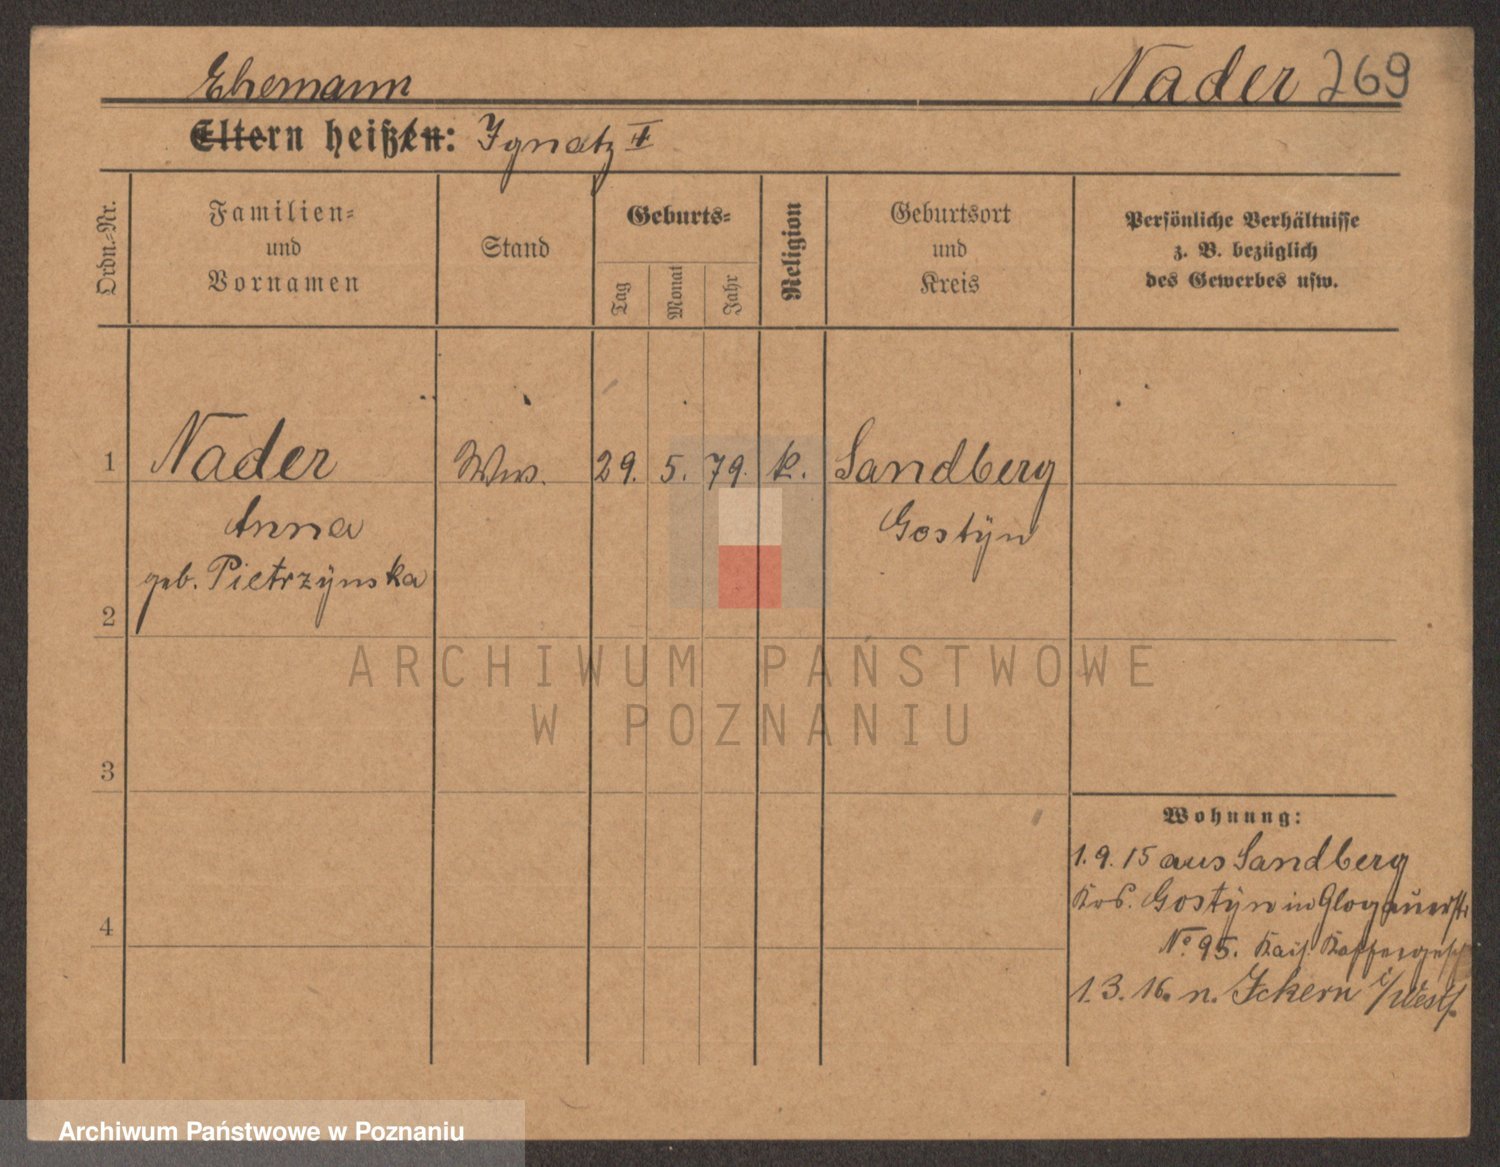 Ehemann
Nader 269
Eltern heißen: Ignatz II
Ordn.-Nr.
Familien-
und
Vornamen
Stand
Geburts-
Tag
Monat
Jahr
Religion
Geburtsort
und
Kreis
Persönliche Verhältnisse
z. B. bezüglich
des Gewerbes usw.
1 Nader Wws. 29. 5. 79. k. Sandberg
Anna Gostÿn
geb. Pietrzÿnska
2
ARCHIWUM PAŃSTWOWE
W POZNANIU
3
Wohnung:
1.9.15 aus Sandberg
Krs. Gostÿn in Glogauerstr
4
No 95. Kais. 
1.3.16. n. Ickern i/Westf.
Archiwum Państwowe w Poznaniu